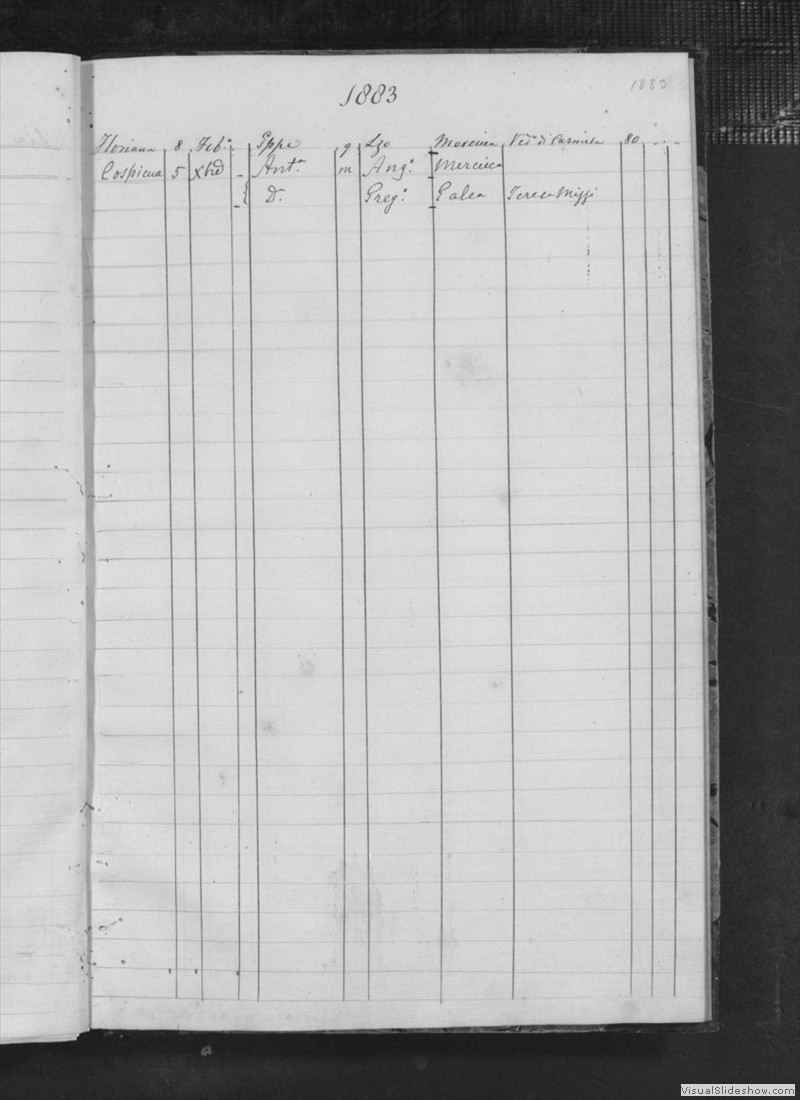 1883
1883
Floriana 8 Feb.º Gppe q Lgo Vedº d' Carmela 80
Cospicua 5 Xbre Ant.ª m Ang.º Mercieca
D. Greg.º Galea Teresa Mizzi
VisualSlideshow.com